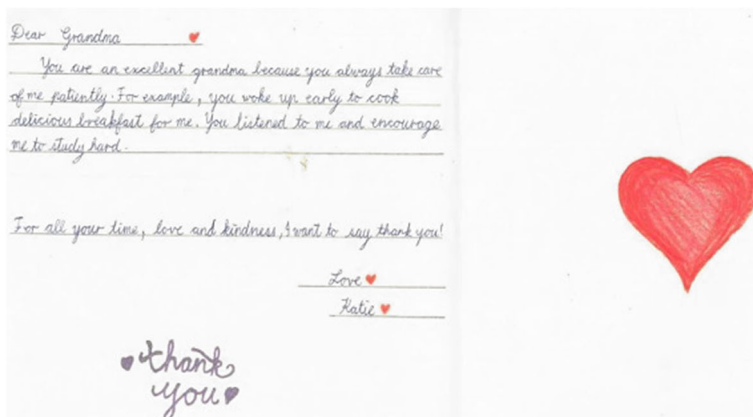 Dear Grandma
You are an excellent grandma because you always take care
of me patiently. For example, you woke up early to cook
delicious breakfast for me. You listened to me and encourage
me to study hard.
For all your time, love and kindness, I want to say thank you!
Love
Katie
thank
you